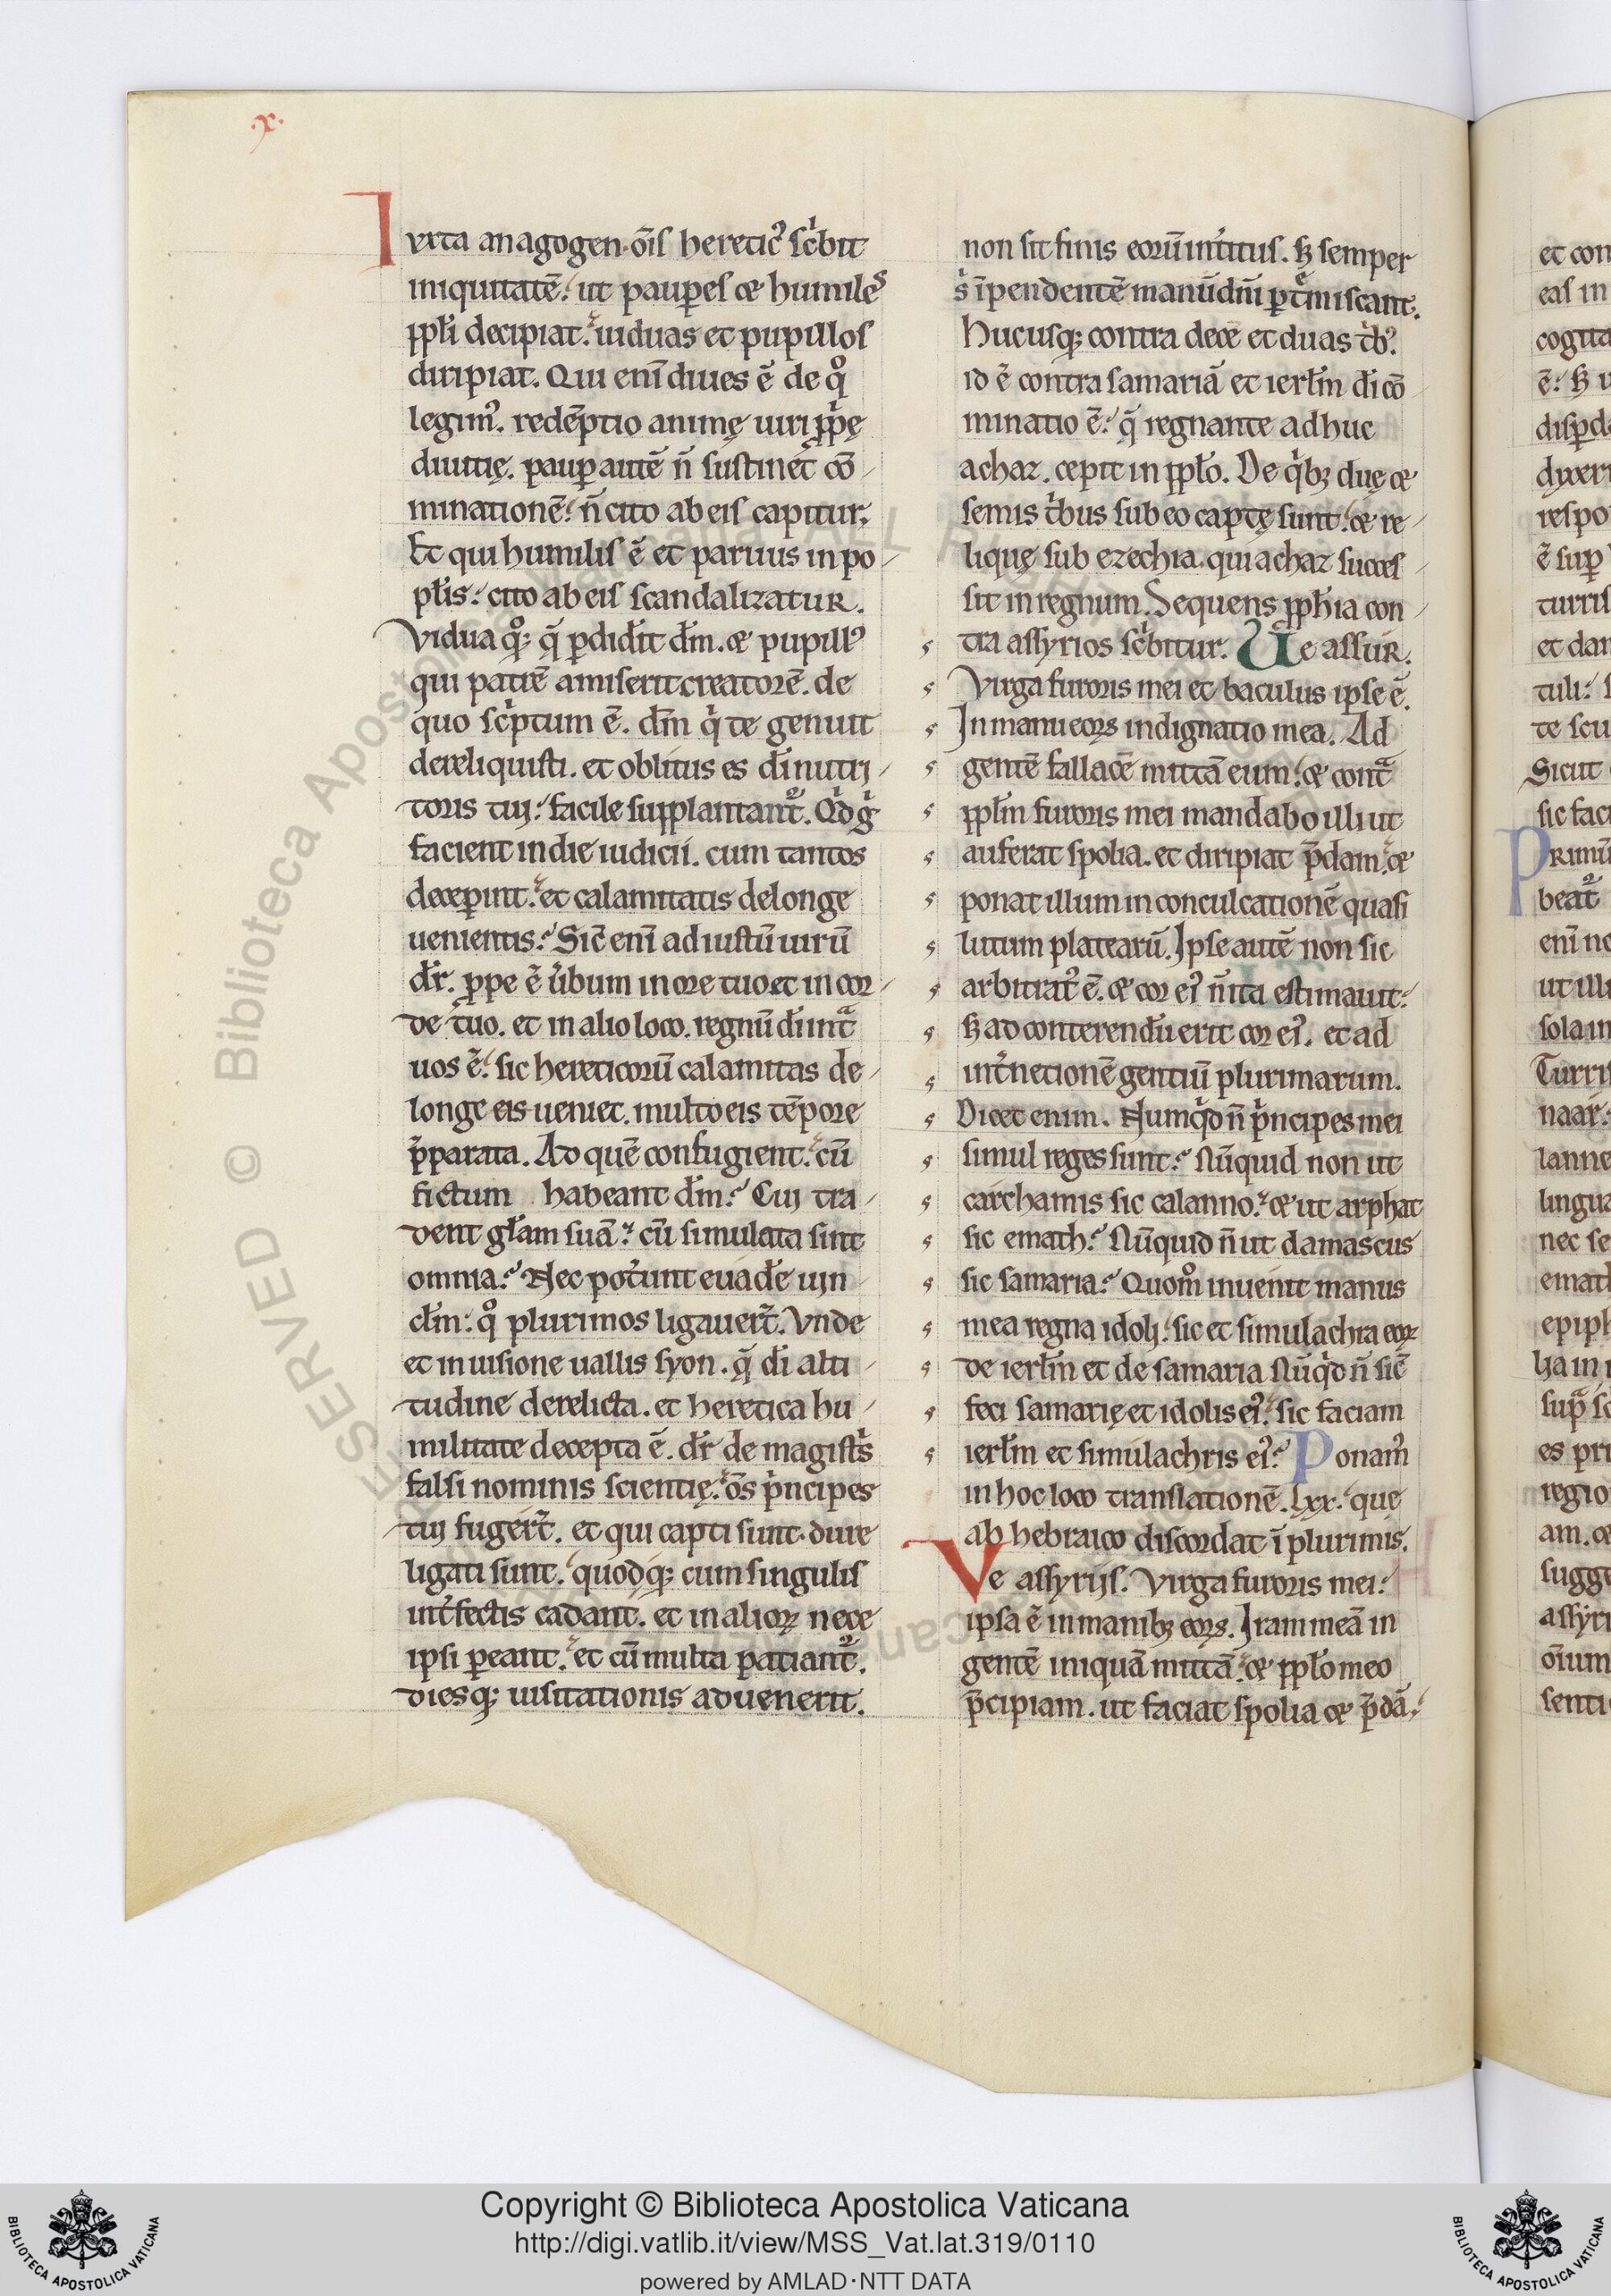 .x.
Iuxta anagogen. oīs heretic᷒ sc̍bit
iniquitatē. ut paup̲es et humiles
pp̄li decipiat. uiduas et pupillos
diripiat. Qui enī diues ē de qͦ
legim᷒. redēptio animę uiri ꝓp̄ę
diuitię. paup̲ autē n̄ sustinet cō
minationē. n̄ cito ab eis capitur.
Et qui humilis ē et paruus in po
pl̄is. cito ab eis scandalizatur.
Vidua qͦꝫ q̄ p̲didit dm̄. et pupill᷒
qui patrē amiserit creatorē. de
quo sc̍ptum ē. dm̄ q̍ te genuit
dereliquisti. et oblitus es di̅ nutri
toris tui. facile supplantant᷑. Qͥd g̍
facient in die iudicii. cum tantos
decep̲int. et calamitatis de longe
uenientis. Sic̄ enī ad iustū uirū
dr̄. ꝓpe ē ūbum in ore tuo et in cor
de tuo. et in alio loco. regnū di̅ intͣ
uos ē. sic hereticorū calamitas de
longe eis ueniet. multo eis tēpore
p̄parata. Ad quē confugient. cū
fictum habeant dm̄. Cui tra
dent gl̄am suā. cū simulata sint
omnia. Nec pot̄unt euade̅ uin
dm̄. qͦ plurimos ligauer̄t. Vnde
et in uisione uallis syon. q̄ di̅ alti
tudine derelicta. et heretica hu
militate decepta ē. dr̄ de magistͥs
falsi nominis scientię. oms̄ pͥncipes
tui fuger̄t. et qui capti sunt. dure
ligati sunt. quodqꝫ cum singulis
int̄fectis cadant. et in alioꝝ nece
ipsi p̲eant. et cū multa patiant᷑.
diesqꝫ uisitationis aduenerit.
non sit finis eorū int̄itus. sꝫ semper
sͥ īpendentē manū dn̄i p̲t̄miscant.
Hucusqꝫ contra decē et duas tͥb᷒.
id ē contra samariā et ierl̄m di̅ cō
minatio ē. q̄ regnante adhuc
achaz. cepit in pp̄lo. De qͥbꝫ duę et
semis tͥbus sub eo captę sunt. et re
liquę sub ezechia. qui achaz succes
sit in regnum. Sequens ꝓph̄ia con
tra assyrios sc̍bitur. Ve assur.
Virga furoris mei et baculus ipse ē.
In manu eoꝝ indignatio mea. Ad
gentē fallacē mittā eum. et contͣ
pp̄lm furoris mei mandabo illi ut
auferat spolia. et diripiat p̄dam. et
ponat illum in conculcationē quasi
lutum platearū. Ipse autē non sic
arbitrat᷒ ē. et cor ei᷒ n̄ ita estimauit.
sꝫ ad conterendū erit cor ei᷒. et ad
int̄netionē gentiū plurimarum.
Dicet enim. Numqͥd n̄ pͥncipes mei
simul reges sunt. Nūquid non ut
carchamis sic calanno. et ut arphat
sic emath. Nūquid n̄ ut damascus
sic samaria. Quomͦ inuenit manus
mea regna idoli. sic et simulachra eoꝝ
de ierl̄m et de samaria Nūqͥd n̄ sic̄
feci samarię et idolis ei᷒. sic faciam
ierl̄m et simulachris ei᷒. Ponam᷒
in hoc loco translationē. lxx. que
ab hebraico discordat ī plurimis.
Ve assyriis. Virga furoris mei.
ipsa ē in manibꝫ eoꝝ. Iram meā in
gentē iniquā mittā. et pp̄lo meo
p̄cipiam. ut faciat spolia et p̄dā.
et con
eas in
cogita
ē. sꝫ
disp̲da
dixeri
respo
ē sup̲
turris
et dar
tuli.
te scu
Sicut
sic faci
Primū
beat᷑
enī no
ut illu
sola in
Turris
naar.
lanne
lingua
nec se
emath
epiph
lia in
supͣ sc
es pri
regio
am. et
sugge
assyri
oīum
senti
Copyright © Biblioteca Apostolica Vaticana
http://digi.vatlib.it/view/MSS_Vat.lat.319/0110
powered by AMLAD·NTT DATA
BIBLIOTECA APOSTOLICA VATICANA
BIBLIOTECA APOSTOLICA VATICANA